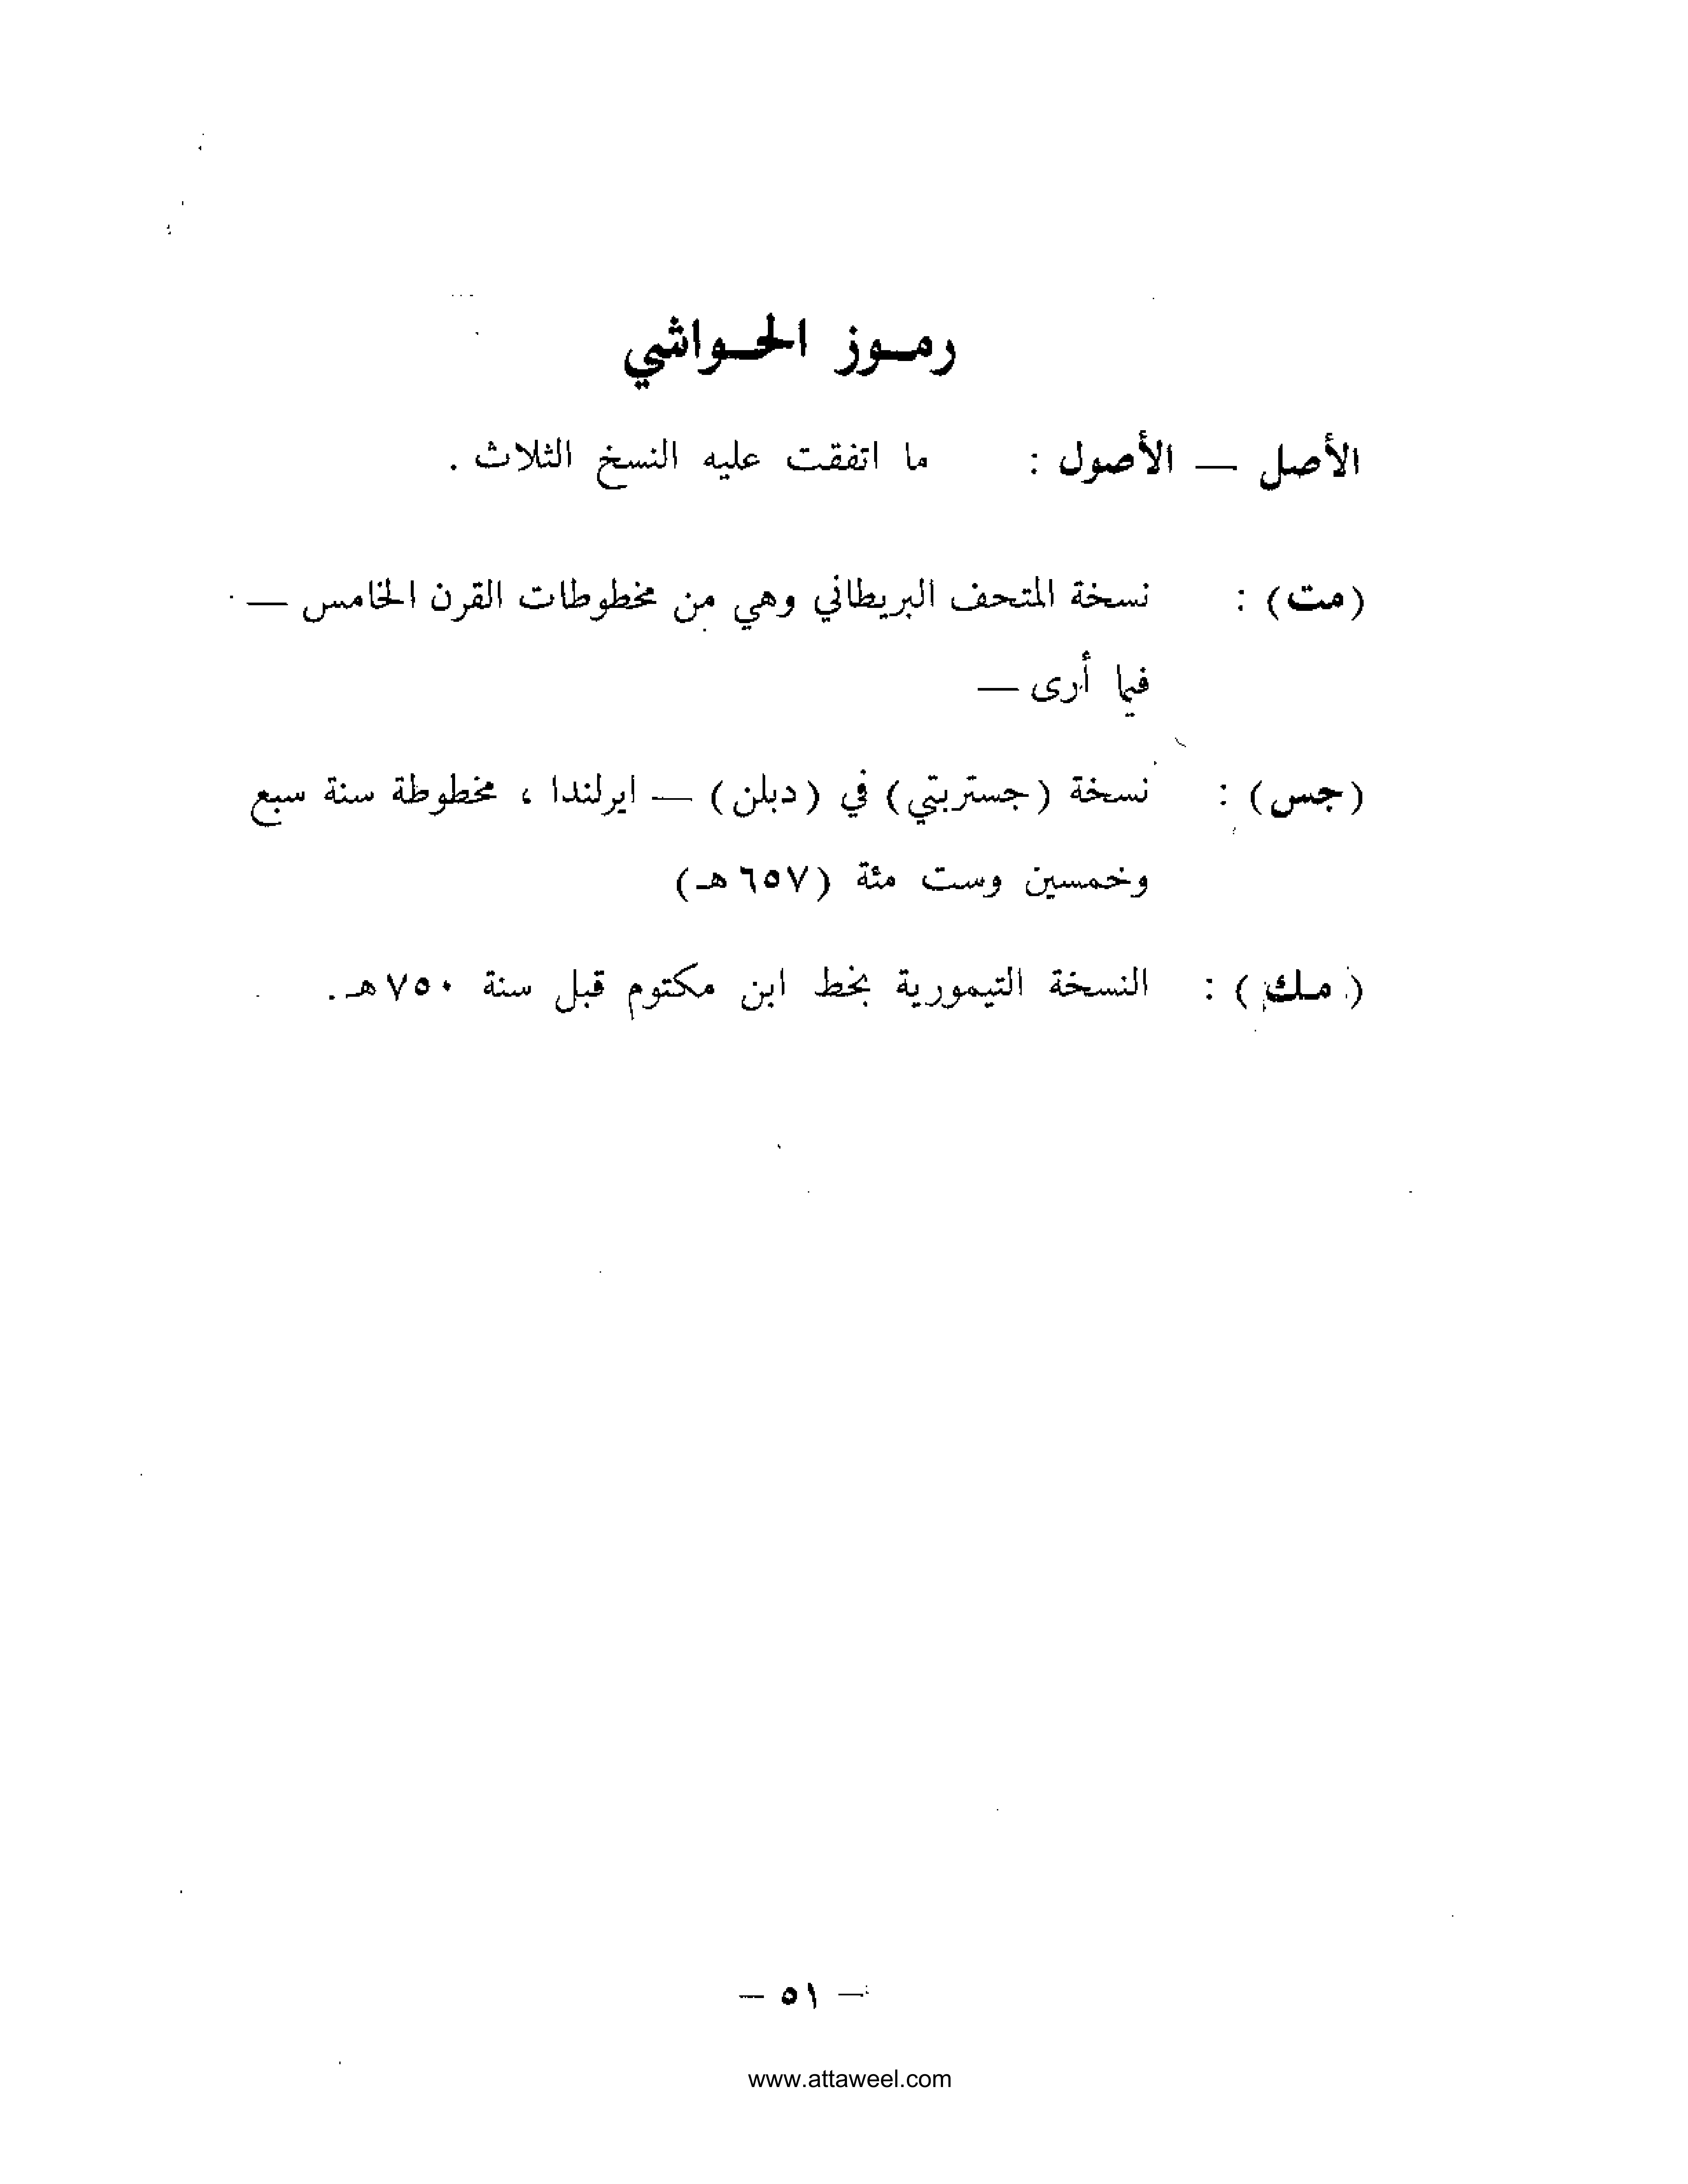 رمـوز الحـواشي
الأصل — الأصول : ما اتفقت عليه النسخ الثلاث .
(مت) : نسخة المتحف البريطاني وهي من مخطوطات القرن الخامس —
فيما أرى —
(جس) : نسخة (جستربتي) في (دبلن) — ايرلندا ، مخطوطة سنة سبع
وخمسين وست مئة (٦٥٧ هـ)
(مك) : النسخة التيمورية بخط ابن مكتوم قبل سنة ٧٥٠ هـ .
— ٥١ —
www.attaweel.com